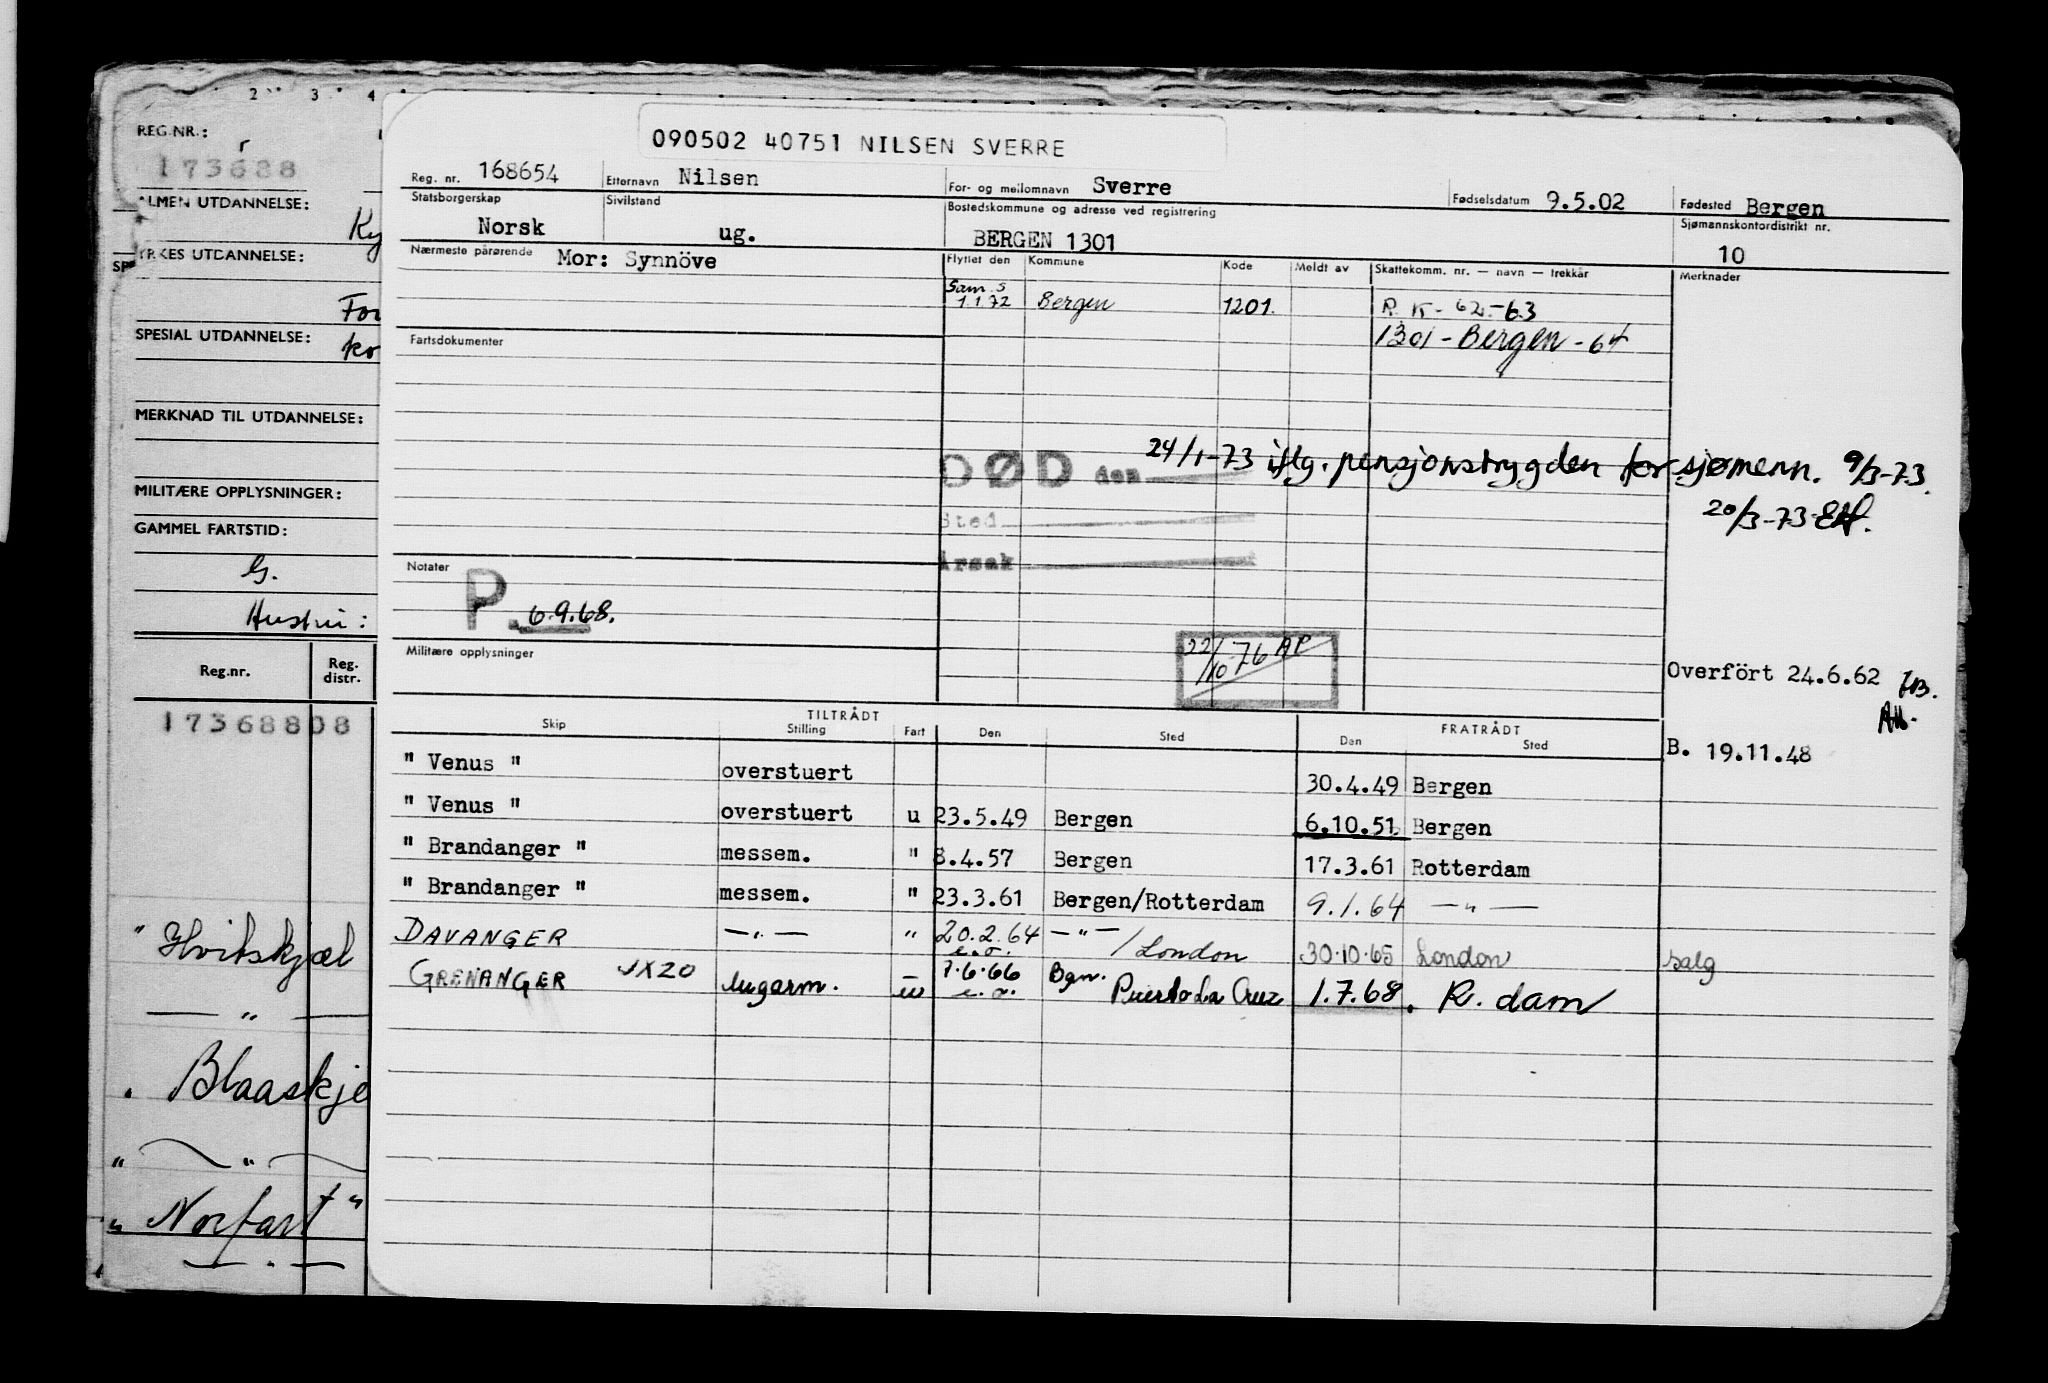 2 3 4
REG.NR.:
173688
ALMEN UTDANNELSE:
Ky
YRKES UTDANNELSE:
For
SPESIAL UTDANNELSE:
ko
MERKNAD TIL UTDANNELSE:
MILITÆRE OPPLYSNINGER:
GAMMEL FARTSTID:
G.
Hustru:
Reg.nr. Reg. distr.
17368808
" Hvitskjæl
— " —
" Blaaskje
" — " —
" Norfart "
— " —
090502 40751 NILSEN SVERRE
Reg. nr. 168654 Etternavn Nilsen For- og mellomnavn Sverre Fødselsdatum 9.5.02 Fødested Bergen
Statsborgerskap Sivilstand Bostedskommune og adresse ved registrering Sjømannskontordistrikt nr.
Norsk ug. BERGEN 1301 10
Nærmeste pårørende Mor: Synnöve Flyttet den Kommune Kode Meldt av Skattekomm. nr. — navn — trekkår Merknader
Sam.s
1.1.72 Bergen 1201. R. K - 62.-63
Fartsdokumenter 1301 - Bergen - 64
DØD den 24/1-73 iflg. pensjonstrygden for sjømenn. 9/3-73.
Sted 20/3-73
Årsak
Notater
P 6.9.68.
22/10-76 AP
Militære opplysninger
Overfört 24.6.62
TILTRÅDT FRATRÅDT
Skip Stilling Fart Den Sted Den Sted
B. 19.11.48
" Venus " overstuert 30.4.49 Bergen
" Venus " overstuert u 23.5.49 Bergen 6.10.51 Bergen
" Brandanger " messem. " 8.4.57 Bergen 17.3.61 Rotterdam
" Brandanger " messem. " 23.3.61 Bergen/Rotterdam 9.1.64 — " —
DAVANGER — " — " 20.2.64 — " — / London 30.10.65 London salg
GRENANGER JXZO lugarm. 7.6.66 Bgn. Puerto La Cruz 1.7.68. R. dam